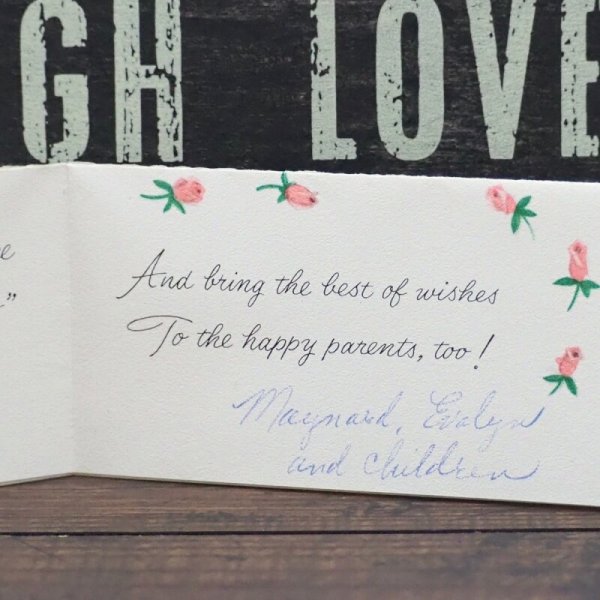 GH LOVE
e
"
And bring the best of wishes
To the happy parents, too!
Maynard, Evelyn
and children